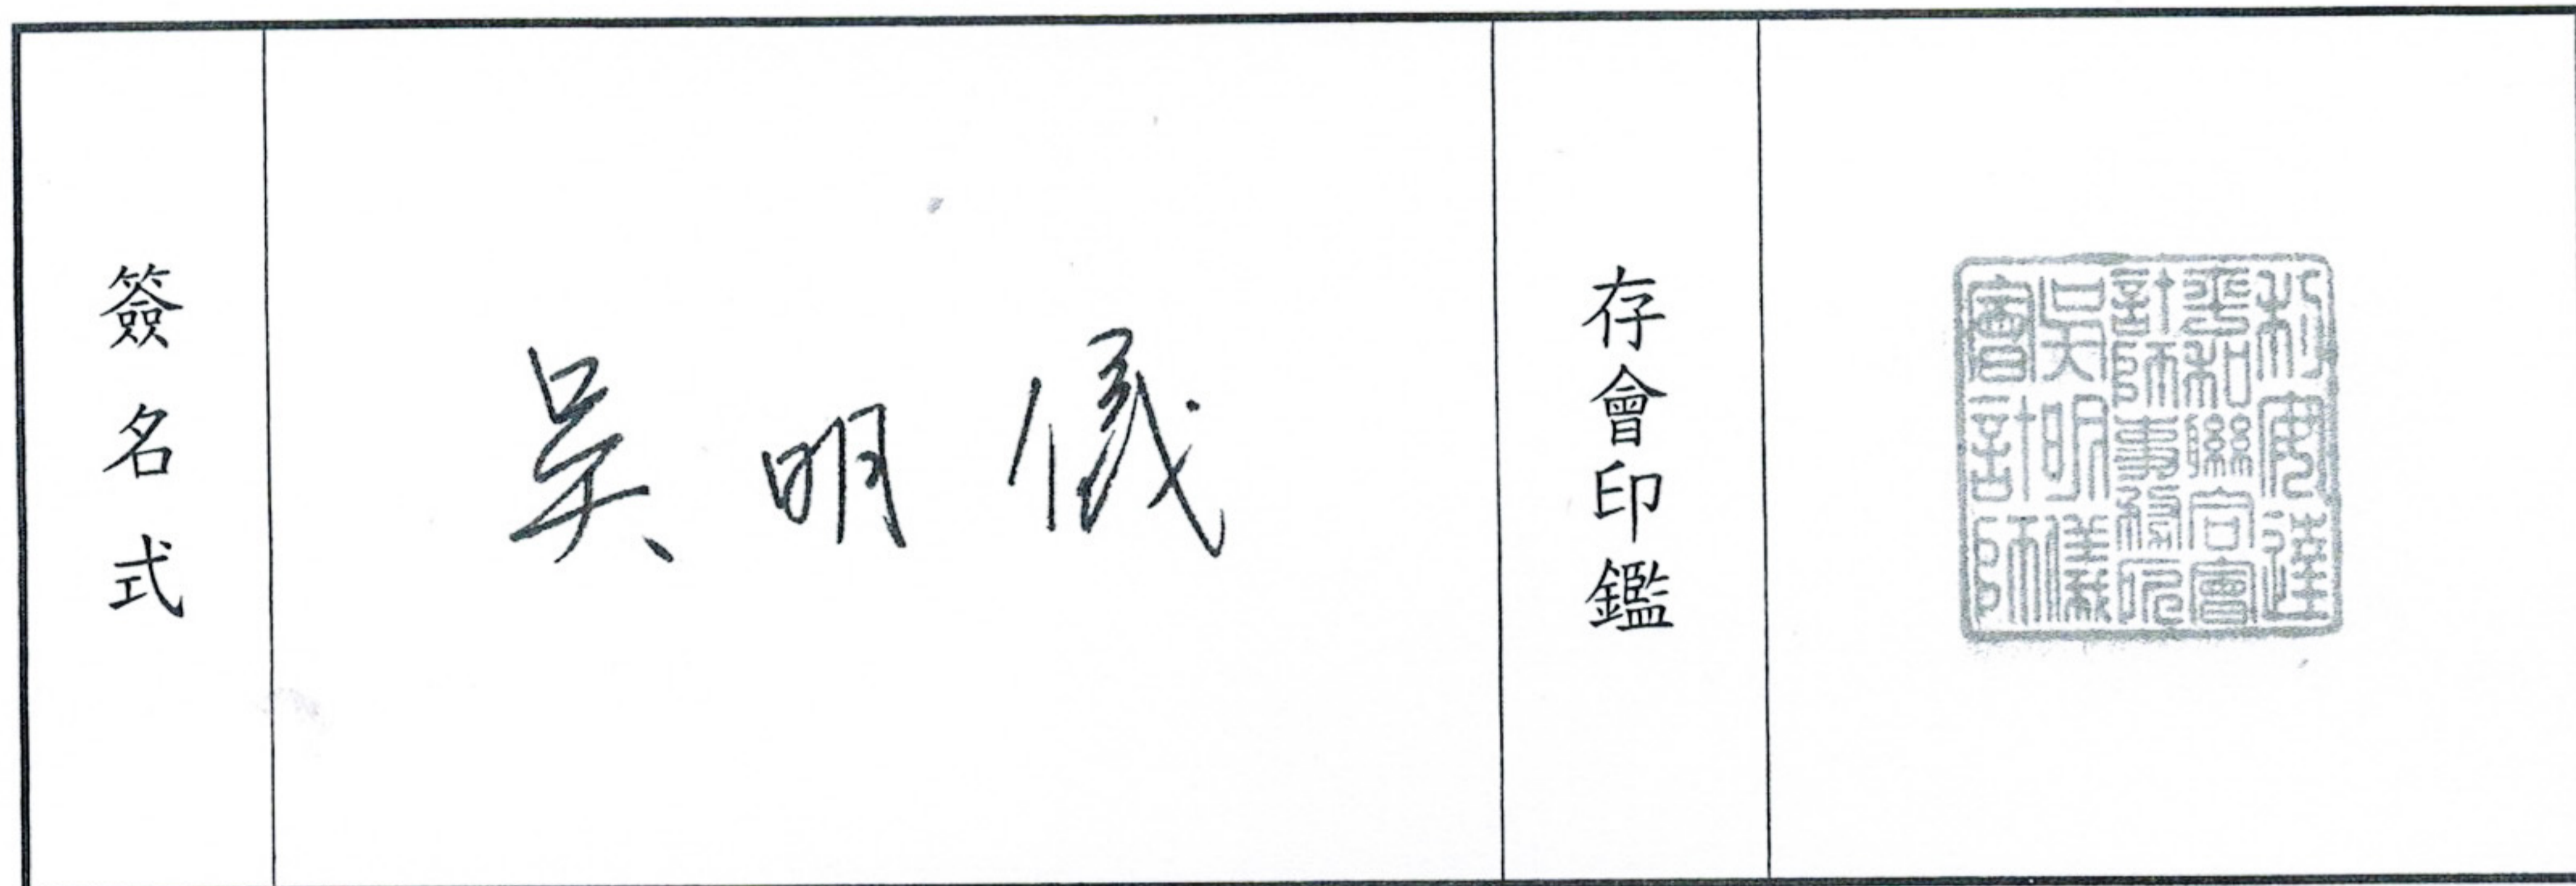 簽名式
吳明儀
存會印鑑
利安達
平和聯合會
計師事務所
吳明儀
會計師